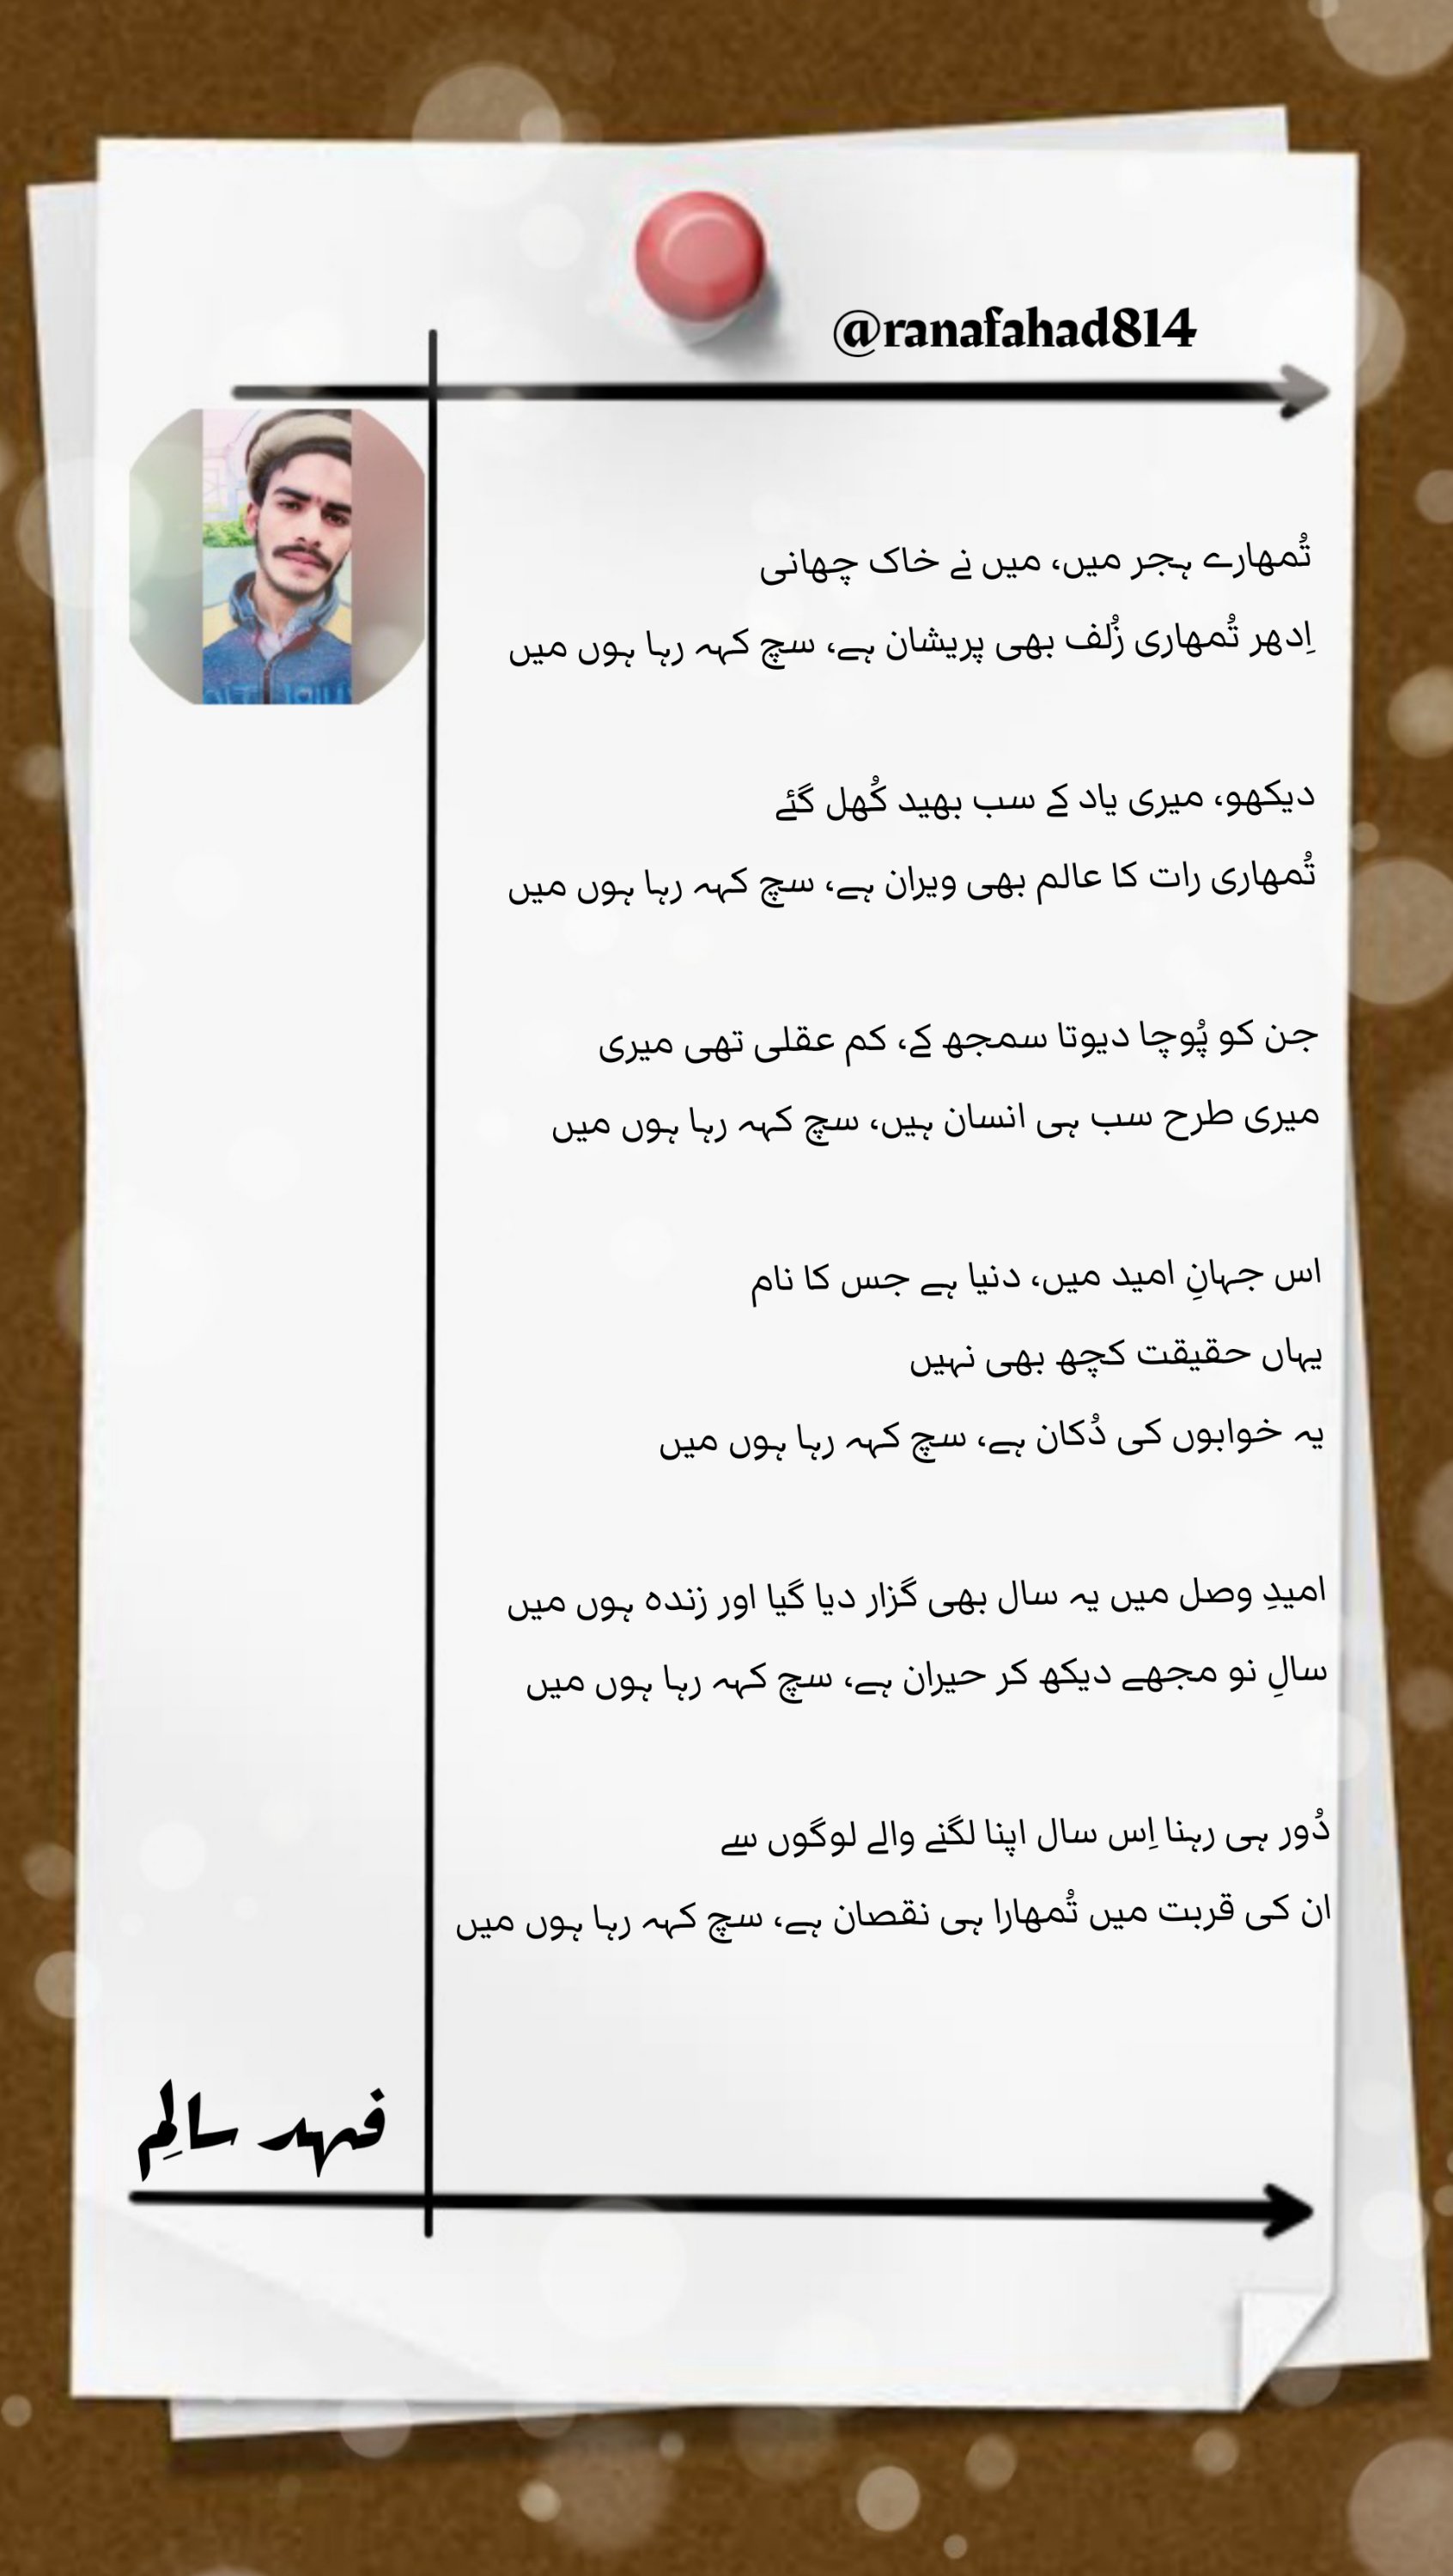 @ranafahad814
تُمھارے ہجر میں، میں نے خاک چھانی
اِدھر تُمھاری زُلف بھی پریشان ہے، سچ کہہ رہا ہوں میں
دیکھو، میری یاد کے سب بھید کُھل گئے
تُمھاری رات کا عالم بھی ویران ہے، سچ کہہ رہا ہوں میں
جن کو پُوچا دیوتا سمجھ کے، کم عقلی تھی میری
میری طرح سب ہی انسان ہیں، سچ کہہ رہا ہوں میں
اس جہانِ امید میں، دنیا ہے جس کا نام
یہاں حقیقت کچھ بھی نہیں
یہ خوابوں کی دُکان ہے، سچ کہہ رہا ہوں میں
امیدِ وصل میں یہ سال بھی گزار دیا گیا اور زندہ ہوں میں
سالِ نو مجھے دیکھ کر حیران ہے، سچ کہہ رہا ہوں میں
دُور ہی رہنا اِس سال اپنا لگنے والے لوگوں سے
ان کی قربت میں تُمھارا ہی نقصان ہے، سچ کہہ رہا ہوں میں
فہد سالِم